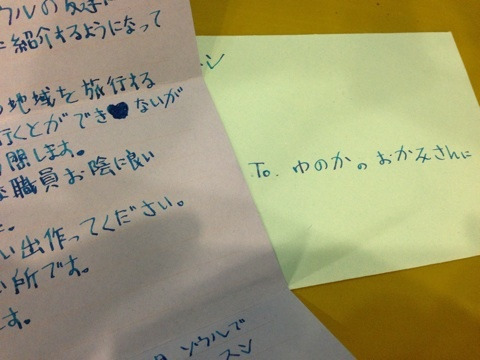 ウルの友達に
紹介するようになって
地域を旅行する
行くとができ♥ないが
閉します。
職員お陰に良い
い出作ってください。
い所です。
ます。
ソウルで
スン
ン
To. ゆのか の おかみさんに